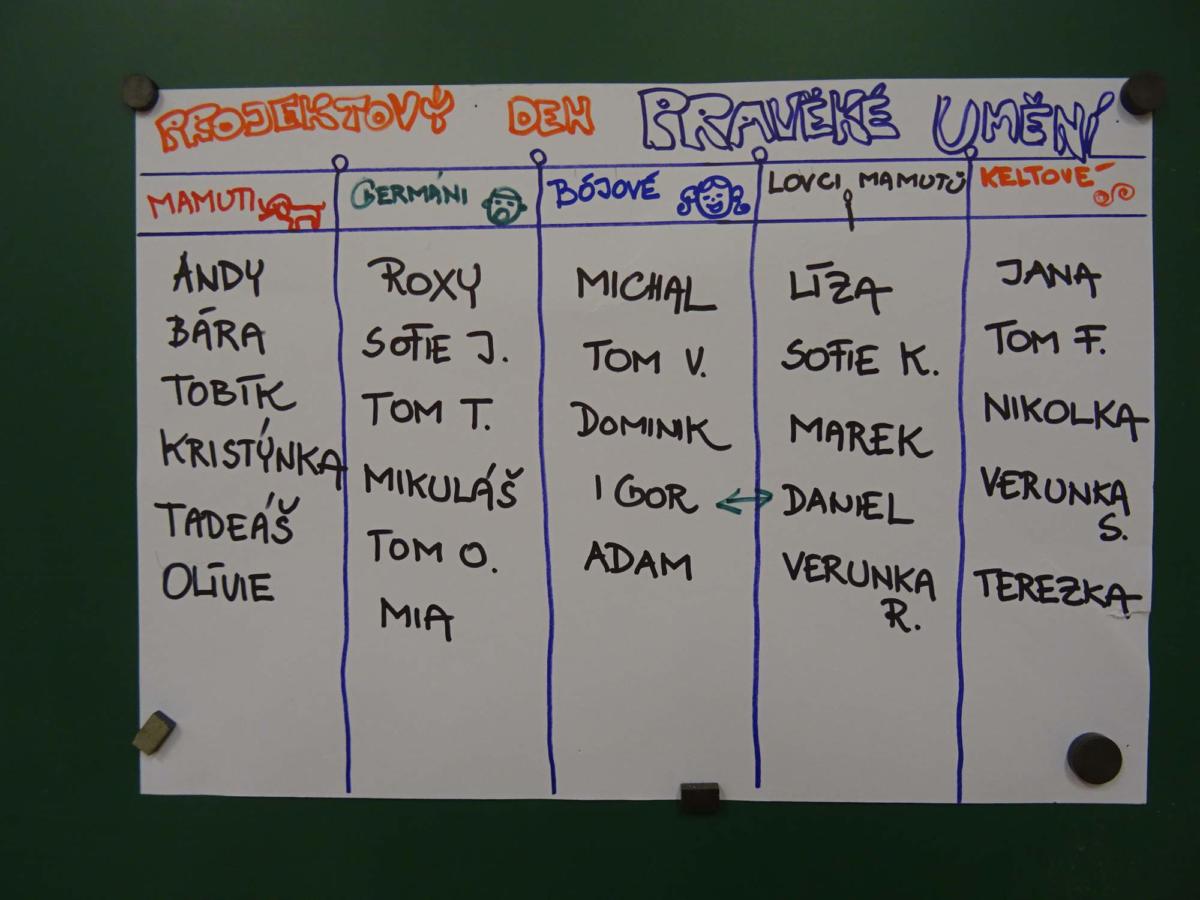 PROJEKTOVÝ DEN PRAVĚKÉ UMĚNÍ
MAMUTI
GERMÁNI
BÓJOVÉ
LOVCI MAMUTŮ
KELTOVÉ
ANDY
BÁRA
TOBÍK
KRISTÝNKA
TADEÁŠ
OLÍVIE
ROXY
SOFIE J.
TOM T.
MIKULÁŠ
TOM O.
MIA
MICHAL
TOM V.
DOMINIK
IGOR
ADAM
LÍZA
SOFIE K.
MAREK
DANIEL
VERUNKA
R.
JANA
TOM F.
NIKOLKA
VERUNKA
S.
TEREZKA